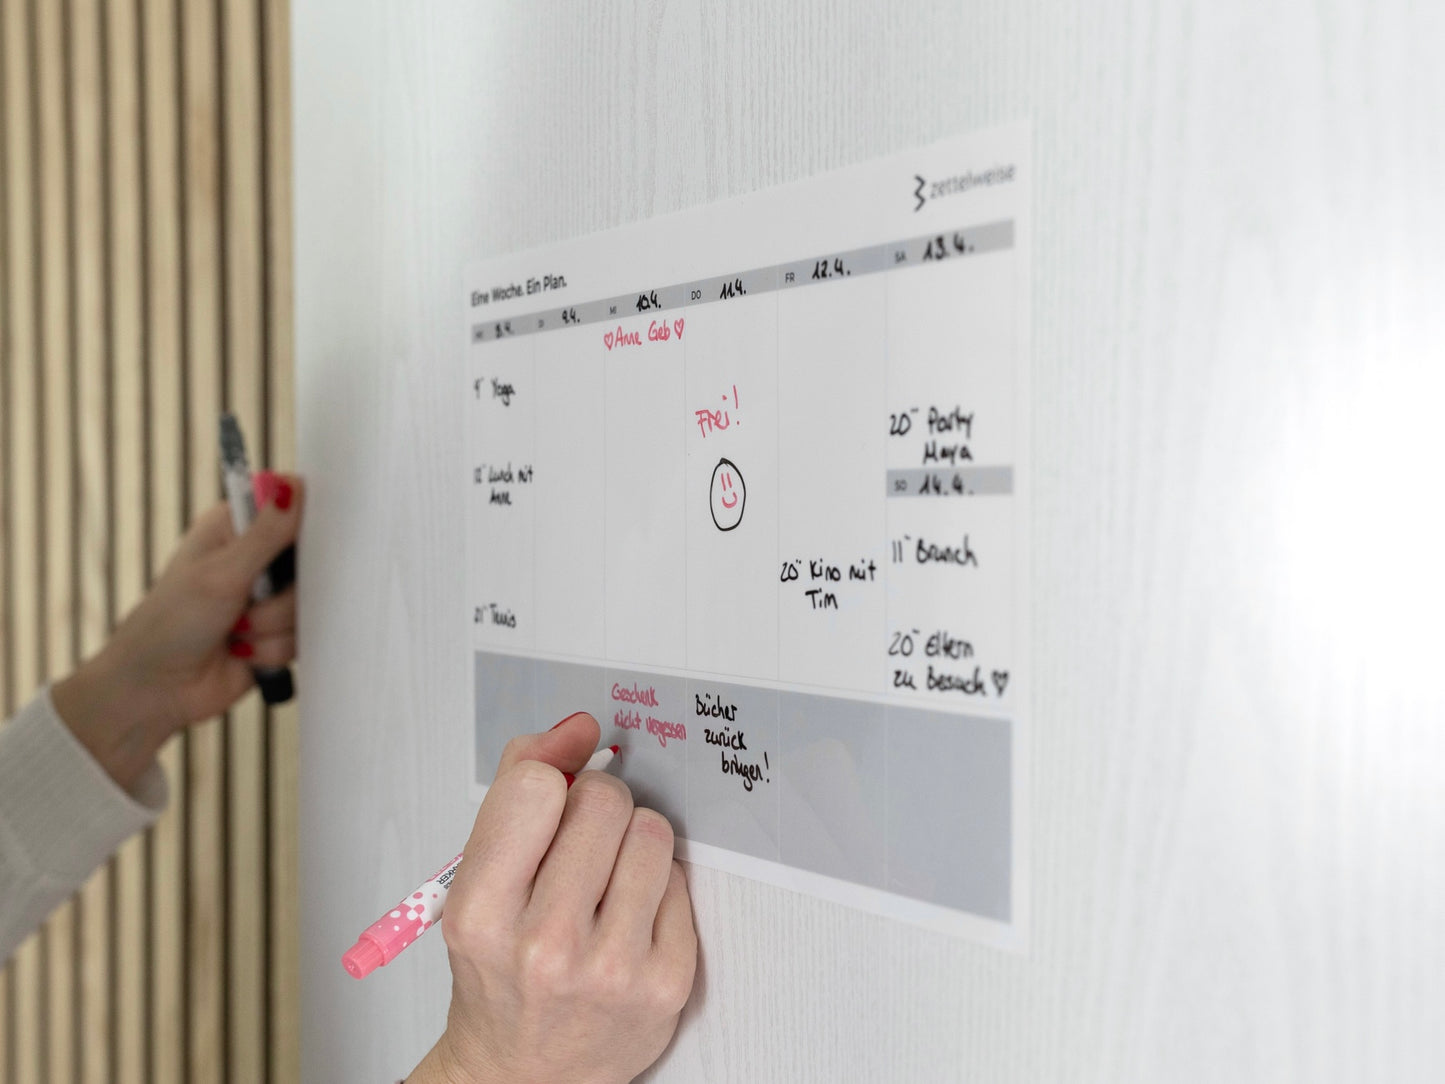 zettelweise
Eine Woche. Ein Plan.
8.4.
DI 9.4.
MI 10.4.
DO 11.4.
FR 12.4.
SA 13.4.
♡ Anne Geb ♡
9°° Yoga
12°° Lunch mit
Anne
21°° Tennis
Frei!
20°° Kino mit
Tim
20°° Party
Maya
SO 14.4.
11°° Brunch
20°° Eltern
zu Besuch ♡
Geschenk
nicht vergessen
Bücher
zurück
bringen!